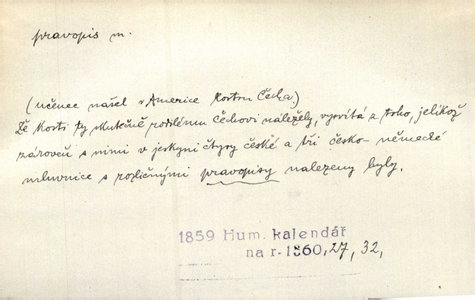 pravopis m.
(učenec našel v Americe kostru Čecha)
Že kosti ty skutečně rodilému Čechovi náležely, vysvítá z toho, jelikož
zároveň s nimi v jeskyni čtyry české a tři česko-německé
mluvnice s rozličnými pravopisy nalezeny byly.
1859 Hum. kalendář
na r. 1860, 27, 32,